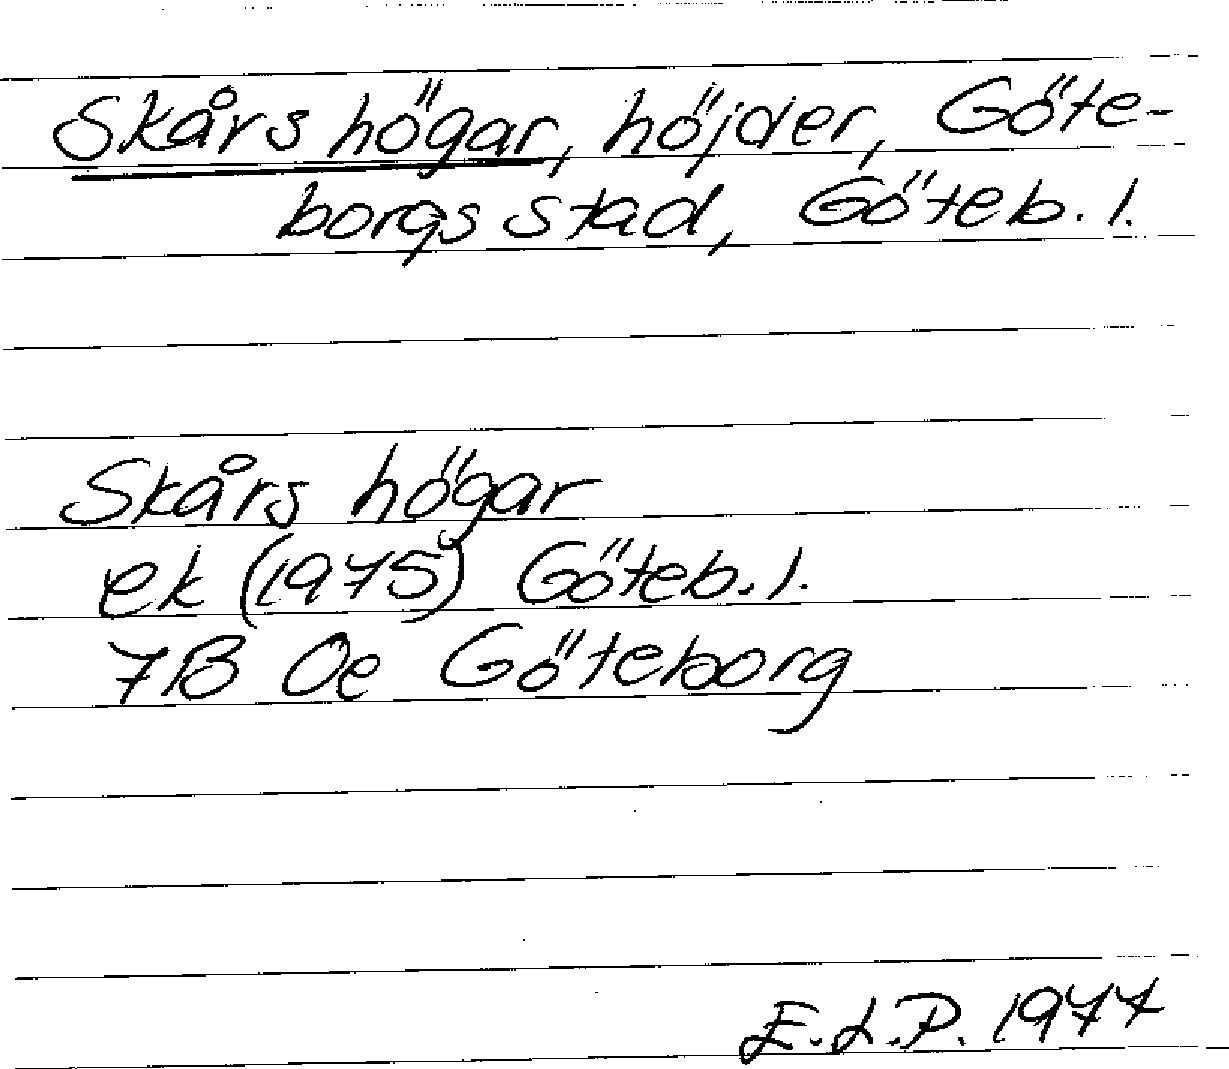 Skårs högar, höjder, Göte-
borgs stad, Göteb. l.
Skårs högar
ek (1975) Göteb. l.
7B 0e Göteborg
E.L.P. 1977